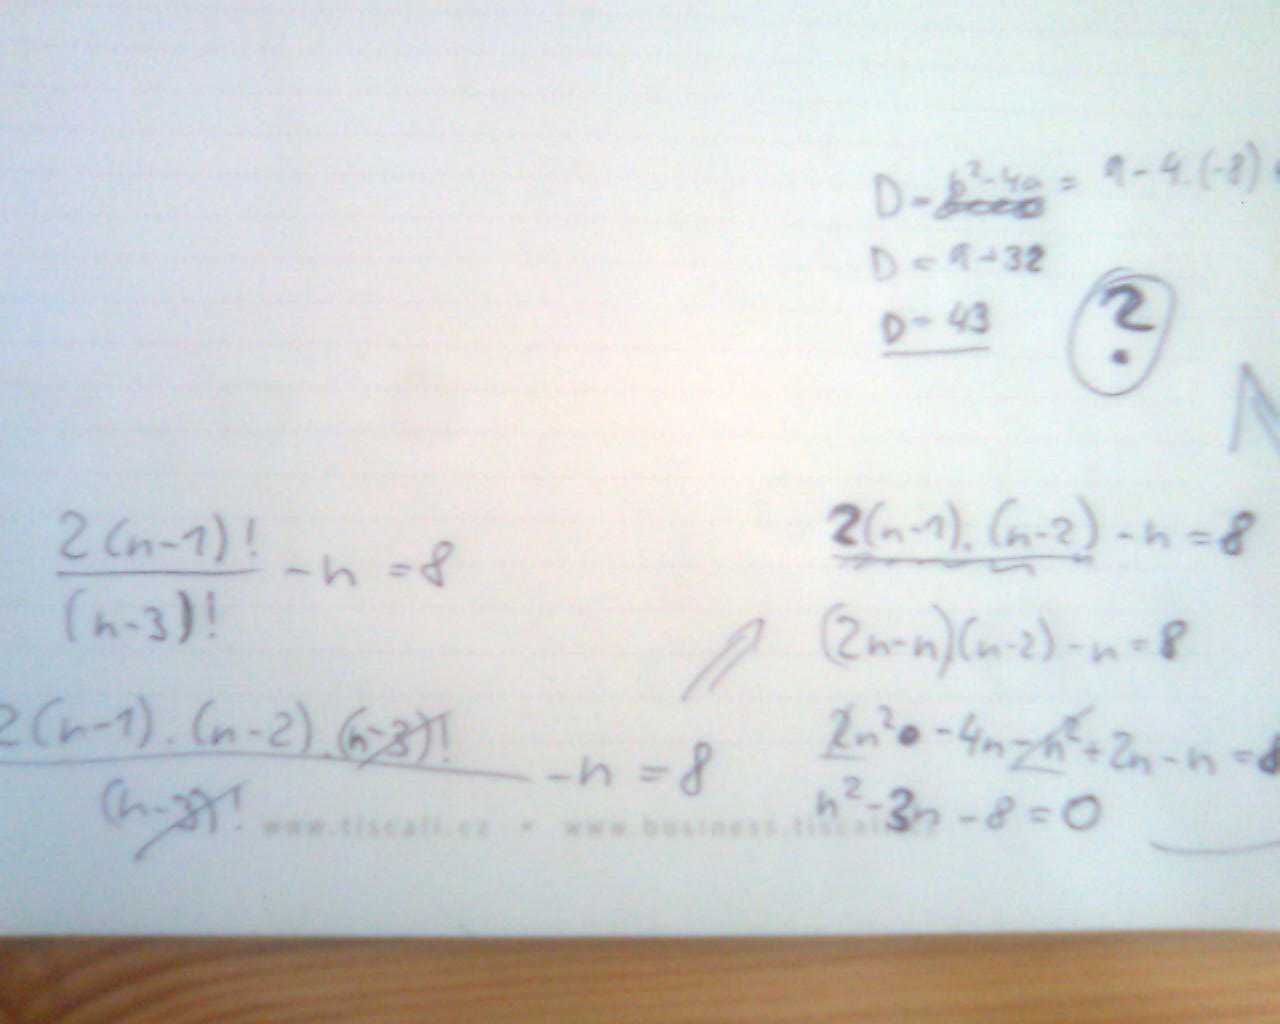 D = b²-4a = 9-4.(-8)
D = 9+32
D = 43
?
2(n-1)! / (n-3)! - n = 8
2(n-1).(n-2).(n-3)! / (n-3)! - n = 8
www.tiscali.cz • www.business.tiscali.cz
2(n-1).(n-2) - n = 8
(2n-n)(n-2) - n = 8
2n² - 4n - n² + 2n - n = 8
n² - 3n - 8 = 0